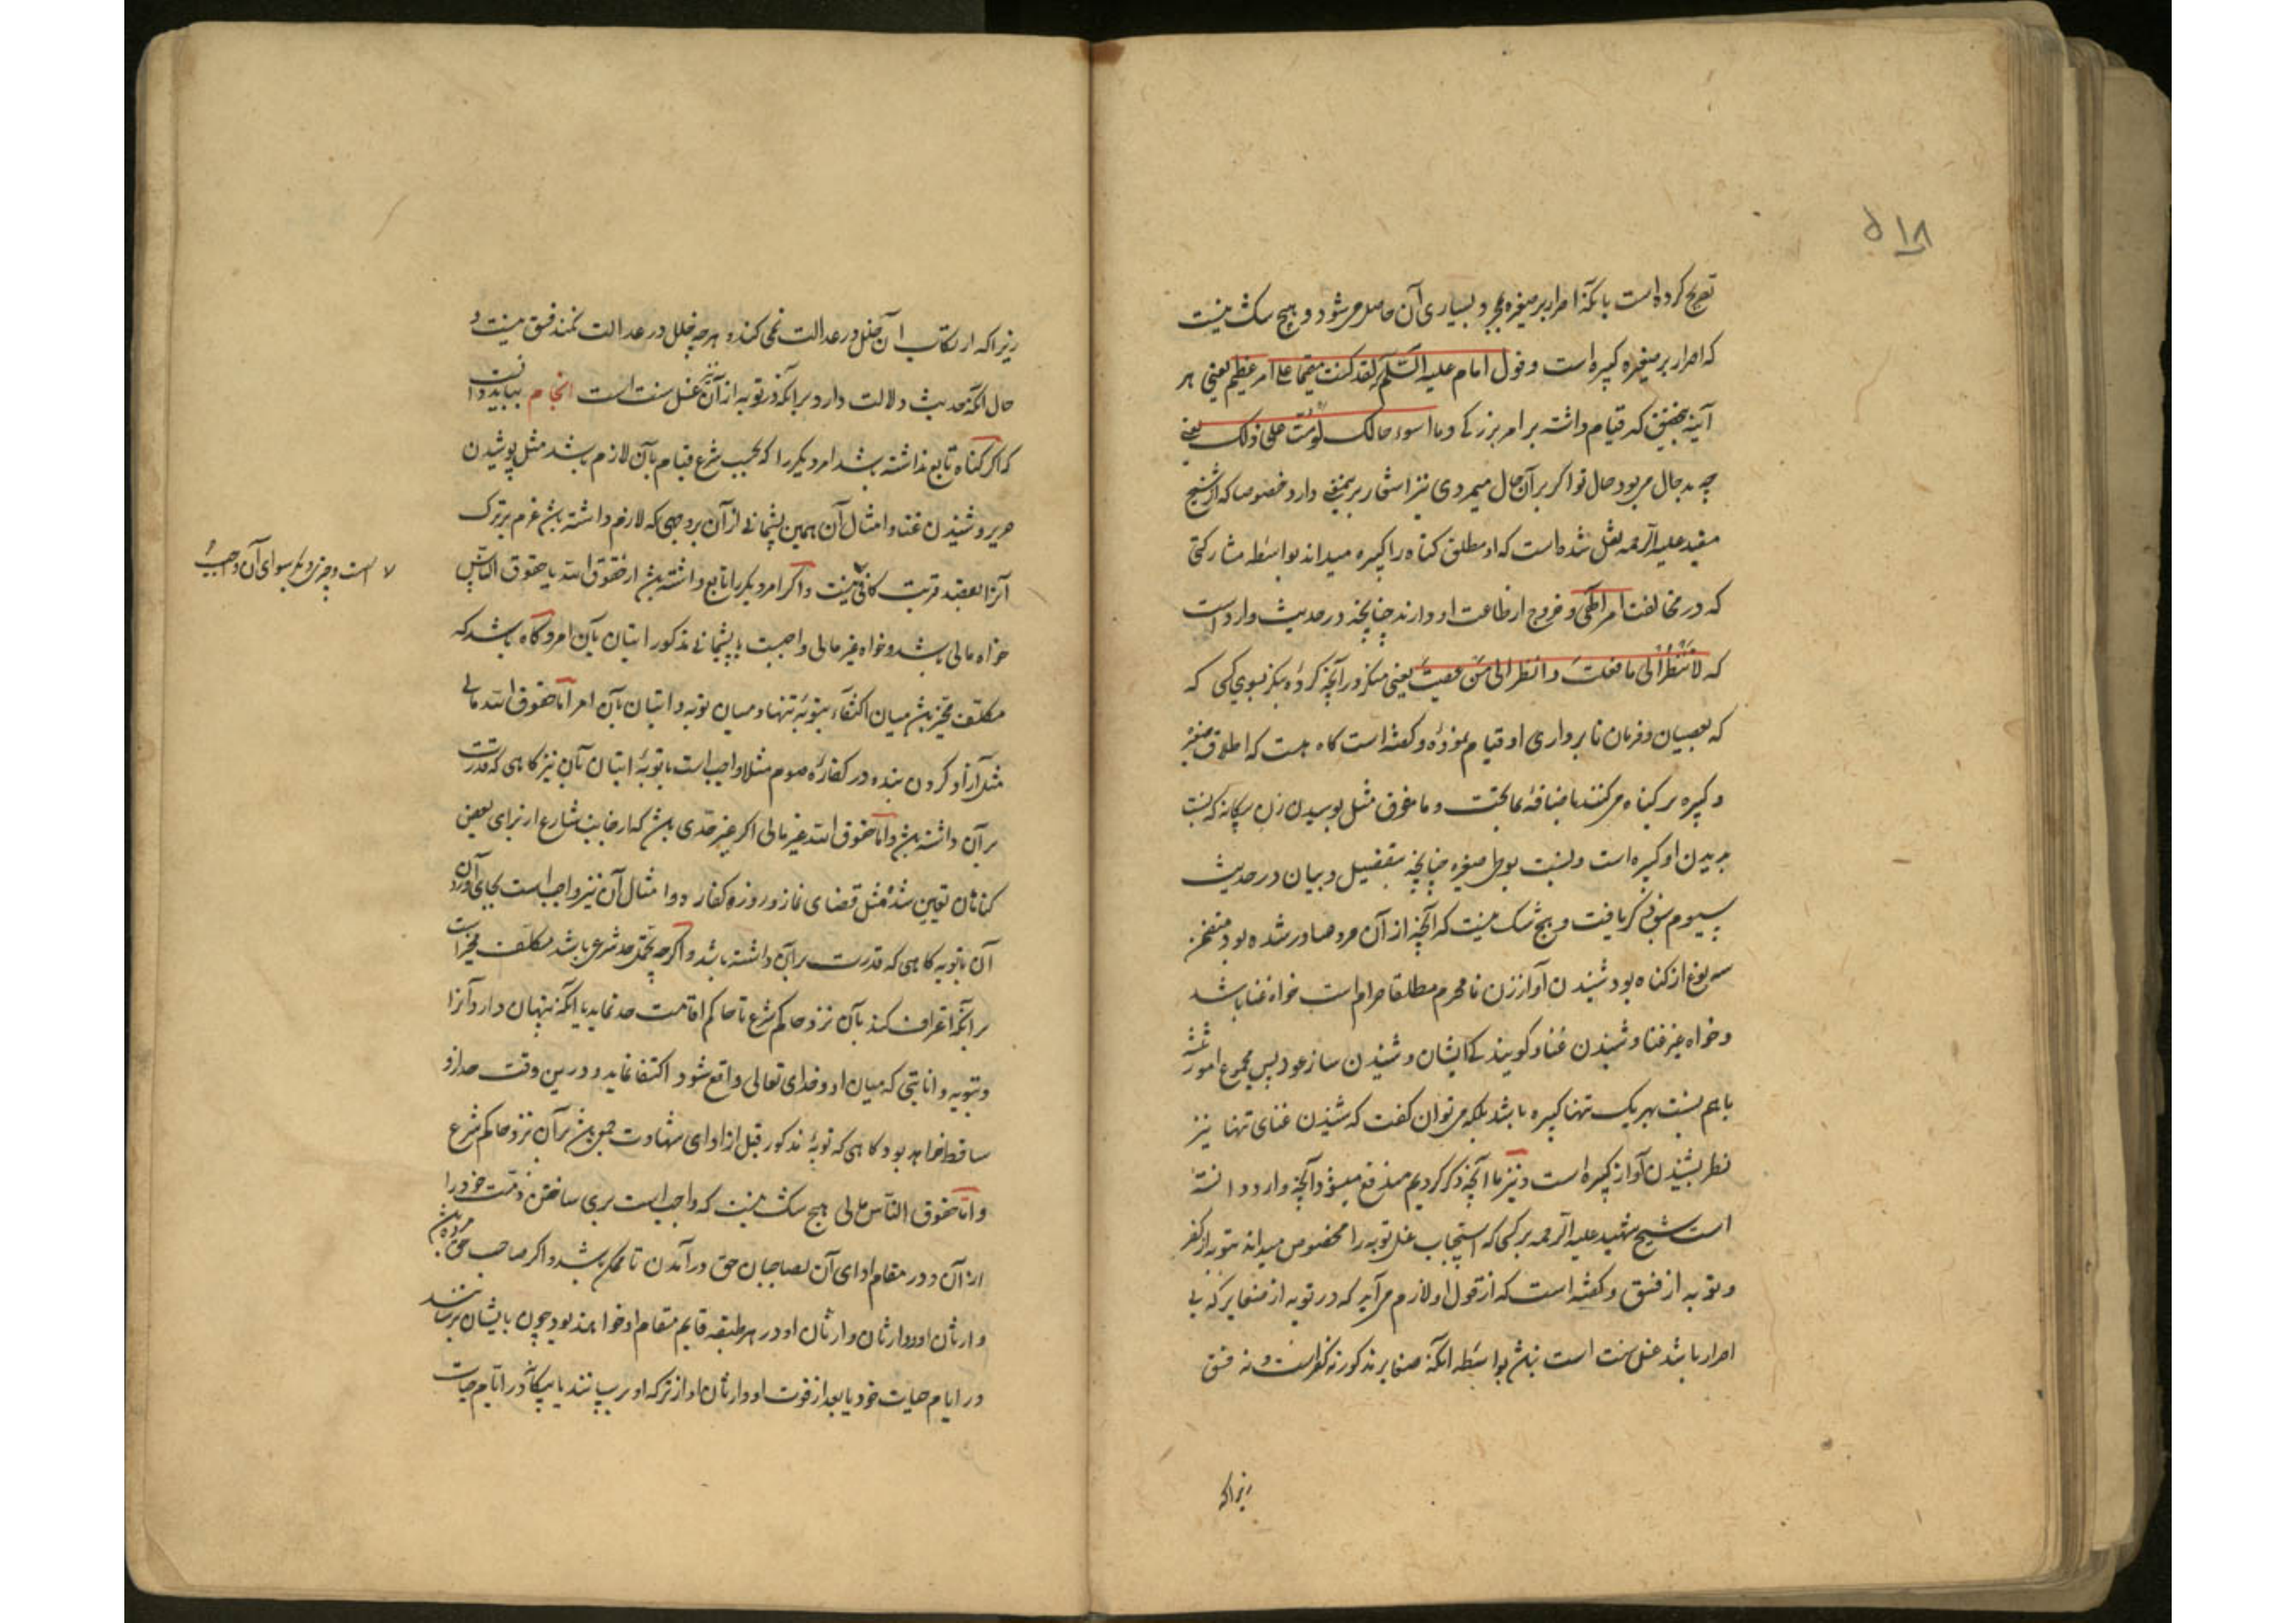 ۵۱۸
تصریح کرده است بآنکه اصرار بر صغیره بمجرد بسیاری آن حاصل می شود و هیچ شک نیست
که اصرار بر صغیره کبیره است و قول امام علیه السّلم لقد کنت مقیما علی امر عظیم یعنی هر
آینه بتحقیق که قیام داشته بر امر بزرگی و ما اسوء حالک لو متّ علی ذلک یعنی
چه بد حال می بود حال تو اگر بر آن حال میمردی نیز اشعار برین معنی دارد خصوصا که از شیخ
مفید علیه الرحمه نقل شده است که او مطلق کناه را کبیره میداند بواسطه مشارکتی
که در مخالفت امر الهی و خروج از طاعت او دارند چنانچه در حدیث وارد است
که لا تنظر الی ما فعلت و انظر الی من عصیت یعنی منکر در آنچه کردهٔ بنکر بسوی کسی که
که بعصیان و فرمان نابرداری او قیام نمودهٔ و کفته است کاه هست که اطلاق صغیره
و کبیره بر کناه می کنند باضافهٔ ما تحت و ما فوق مثل بوسیدن زن بیکانه که نسبت
بدیدن او کبیره است و نسبت بوطی صغیره چنانچه بتفصیل و بیان در حدیث
سیوم سی ذکر یافت و هیچ شک نیست که آنچه از آن مرد صادر شده بود متضمن
سه نوع از کناه بود شنیدن آواز زن نامحرم مطلقا حرام است خواه غنا باشد
و خواه غیر غنا و شنیدن غنا و کویندکی ایشان و شنیدن ساز عود پس مجموع امور ثلثه
باهم نسبت بهر یک تنها کبیره باشد بلکه می توان کفت که شنیدن غنای تنها نیز
نظر بشنیدن آواز کبیره است و نیز با آنچه ذکر کردیم مندفع میشود آنچه وارد دانسته
است شیخ شهید علیه الرحمه بر کسی که استحباب غسل توبه را مخصوص میداند بتوبه از کفر
و توبه از فسق و کفته است که از قول او لازم می آید که در توبه از صغایر که بی
اصرار باشد غسل سنت است نباشد بواسطه آنکه صغایر مذکوره نه کفر است و نه فسق
زیرا که
زیرا که ارتکاب آن خلل در عدالت نمی کند و هر چه خلل در عدالت نکند فسق نیست و
حال آنکه حدیث دلالت دارد بر آنکه در توبه از آن نیز غسل سنت است انجام بباید دانست
که اکر کناه تابع نداشته باشد امر دیکر را که بحسب شرع قیام بآن لازم باشد مثل پوشیدن
حریر و شنیدن غنا و امثال آن همین پشیمانی از آن بر وجهی که لازم داشته باشد عزم بر ترک
آنرا بقصد قربت کافی نیست و اکر امر دیکر را تابع داشته باشد از حقوق الله یا حقوق الناس
است و چیزی دیکر سوای آن واجب
خواه مالی باشد و خواه غیر مالی واجبست با پشیمانی مذکور اتیان بآن امر و کاه باشد که
مکلّف مخیر باشد میان اکتفاء بتوبهٔ تنها و میان توبه و اتیان بآن امر اما حقوق الله مالی
مثل آزاد کردن بنده در کفارهٔ صوم مثلا واجب است با توبهٔ اتیان بآن نیز کاهی که قدرت
بر آن داشته باشد و اما حقوق الله غیر مالی اکر غیر حدی باشد که از جانب شارع از برای بعض
کناهان تعیین شده مثل قضای نماز و روزه کفاره و امثال آن نیز واجب است بجای آوردن
آن با توبه کاهی که قدرت بر آن داشته باشد و اکر چه حد شرعی باشد مکلّف مخیر است
بر آنکه اعتراف کند بآن نزد حاکم شرع تا حاکم اقامت حد نماید یا آنکه پنهان دارد آنرا
و بتوبه و انابتی که میان او و خدای تعالی واقع شود اکتفا نماید و در این وقت حد از او
ساقط خواهد بود کاهی که توبهٔ مذکور قبل از ادای شهادت بر آن نزد حاکم شرع
و اما حقوق الناس مالی هیچ شک نیست که واجب است بری ساختن ذمت خود را
از آن و در مقام ادای آن بصاحبان حق درآمدن تا ممکن باشد و اکر صاحب حق مرده باشد
وارثان او و وارثان وارثان او در هر طبقه قایم مقام او خواهند بود چون بایشان برسانند
در ایام حیات خود یا بعد از فوت او وارثان او از ترکه او برسانند یا بیکانه در ایّام حیات